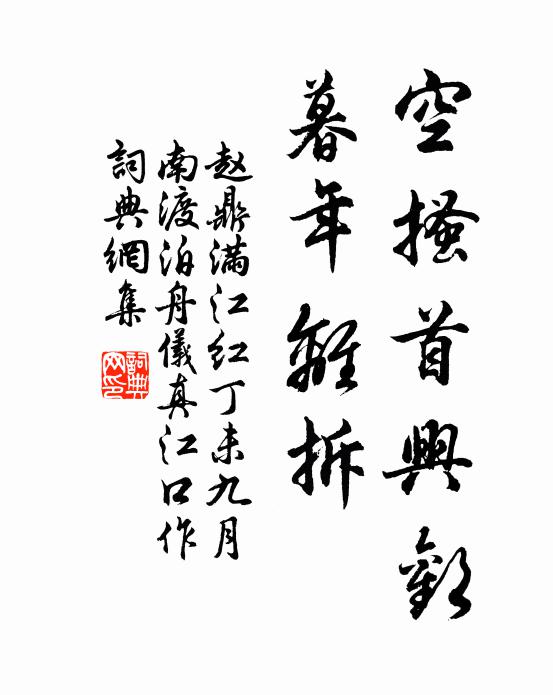 空搔首興歎
暮年離拆
赵鼎滿江红丁未九月
南渡泊舟儀真江口作
詞典網集
詞典网印